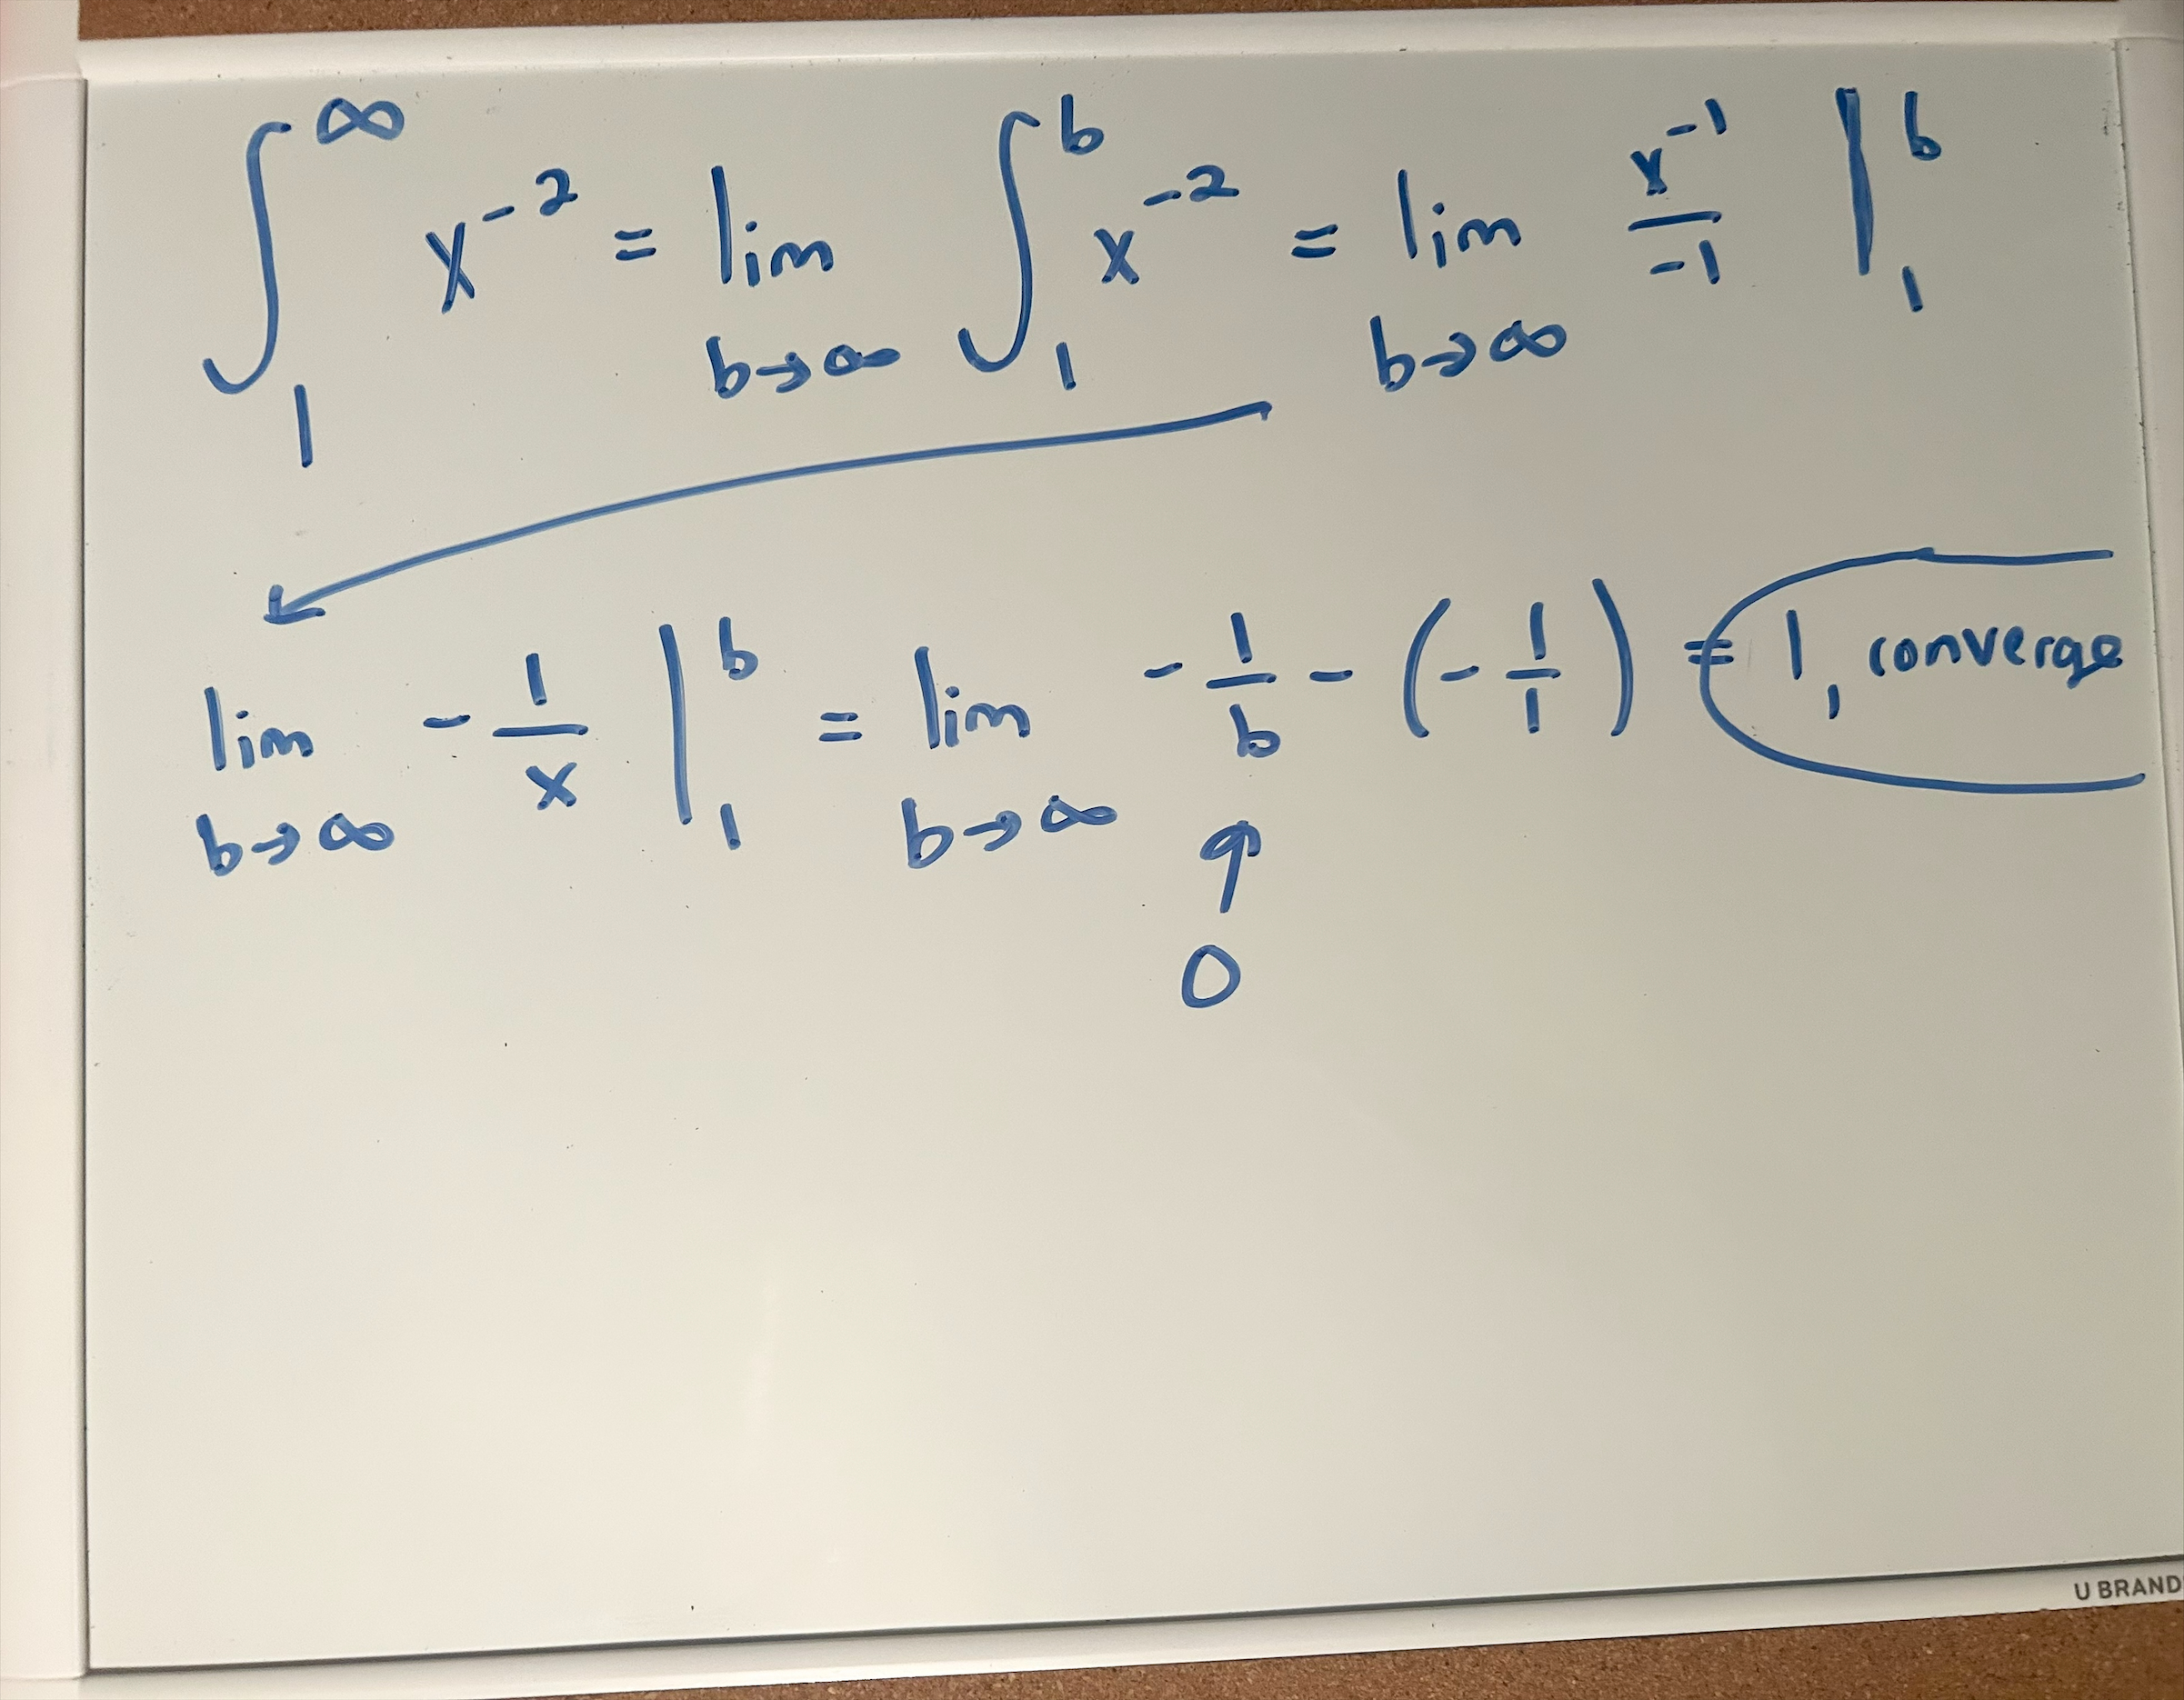 ∫₁^∞ x⁻² = lim b→∞ ∫₁^b x⁻² = lim b→∞ x⁻¹/-1 |₁^b
lim b→∞ -1/x |₁^b = lim b→∞ -1/b - (-1/1) = 1, converge
↑
0
U BRAND